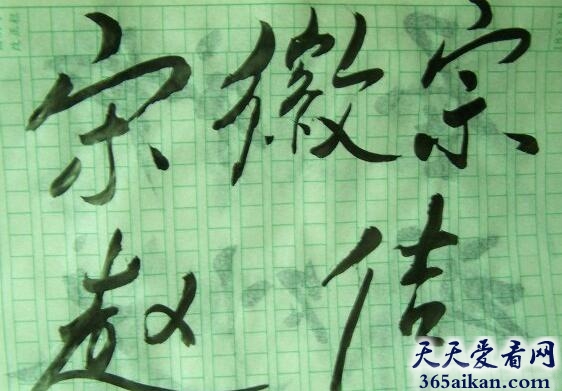 宋徽宗
赵佶
天天爱看网
365aikan.com